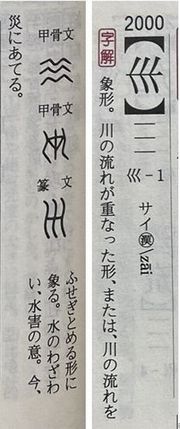 2000
【巛】
巛-1
サイ㊊漢\zāi
字解 象形。川の流れが重なった形、または、川の流れを
甲骨文
甲骨文
篆文
ふせぎとめる形に
象る。水のわざわ
い、水害の意。今、
災にあてる。